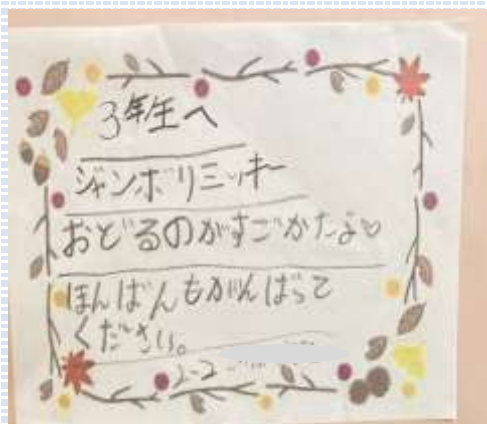 3年生へ
ジャンボリミッキー
おどるのがすごかたよ♡
ほんばんもがんばって
ください。
2-2